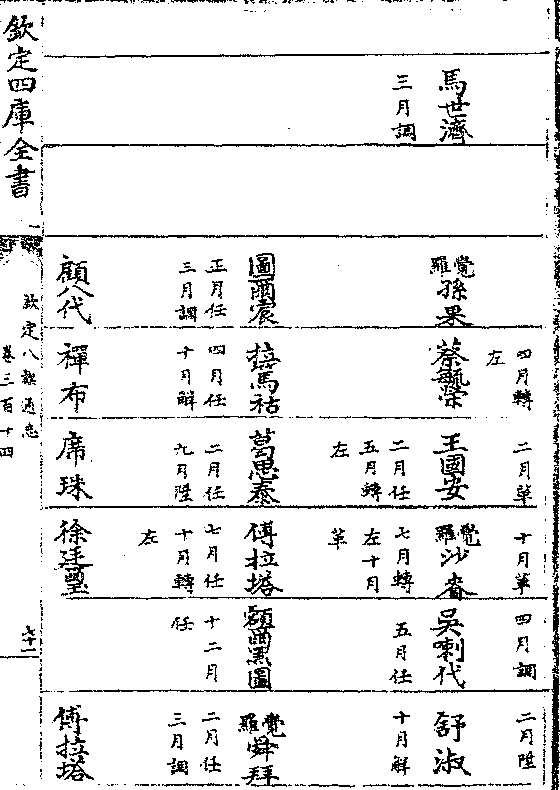 馬世濟
三月調
覺羅孫果
圖爾宸
正月任
三月調
顧八代
四月轉
左
蔡毓榮
拉馬祜
四月任
十月解
禪布
二月革
王國安
二月任
五月轉
左
葛思泰
二月任
九月陞
席珠
十月革
覺羅沙賚
七月轉
左十月
革
傅拉塔
七月任
十月轉
左
徐廷璽
四月調
吳喇代
五月任
額爾黑圖
十二月
任
二月陞
舒淑
十月解
覺羅舜拜
二月任
三月調
傅拉塔
欽定四庫全書
欽定八旗通志
卷三百十四